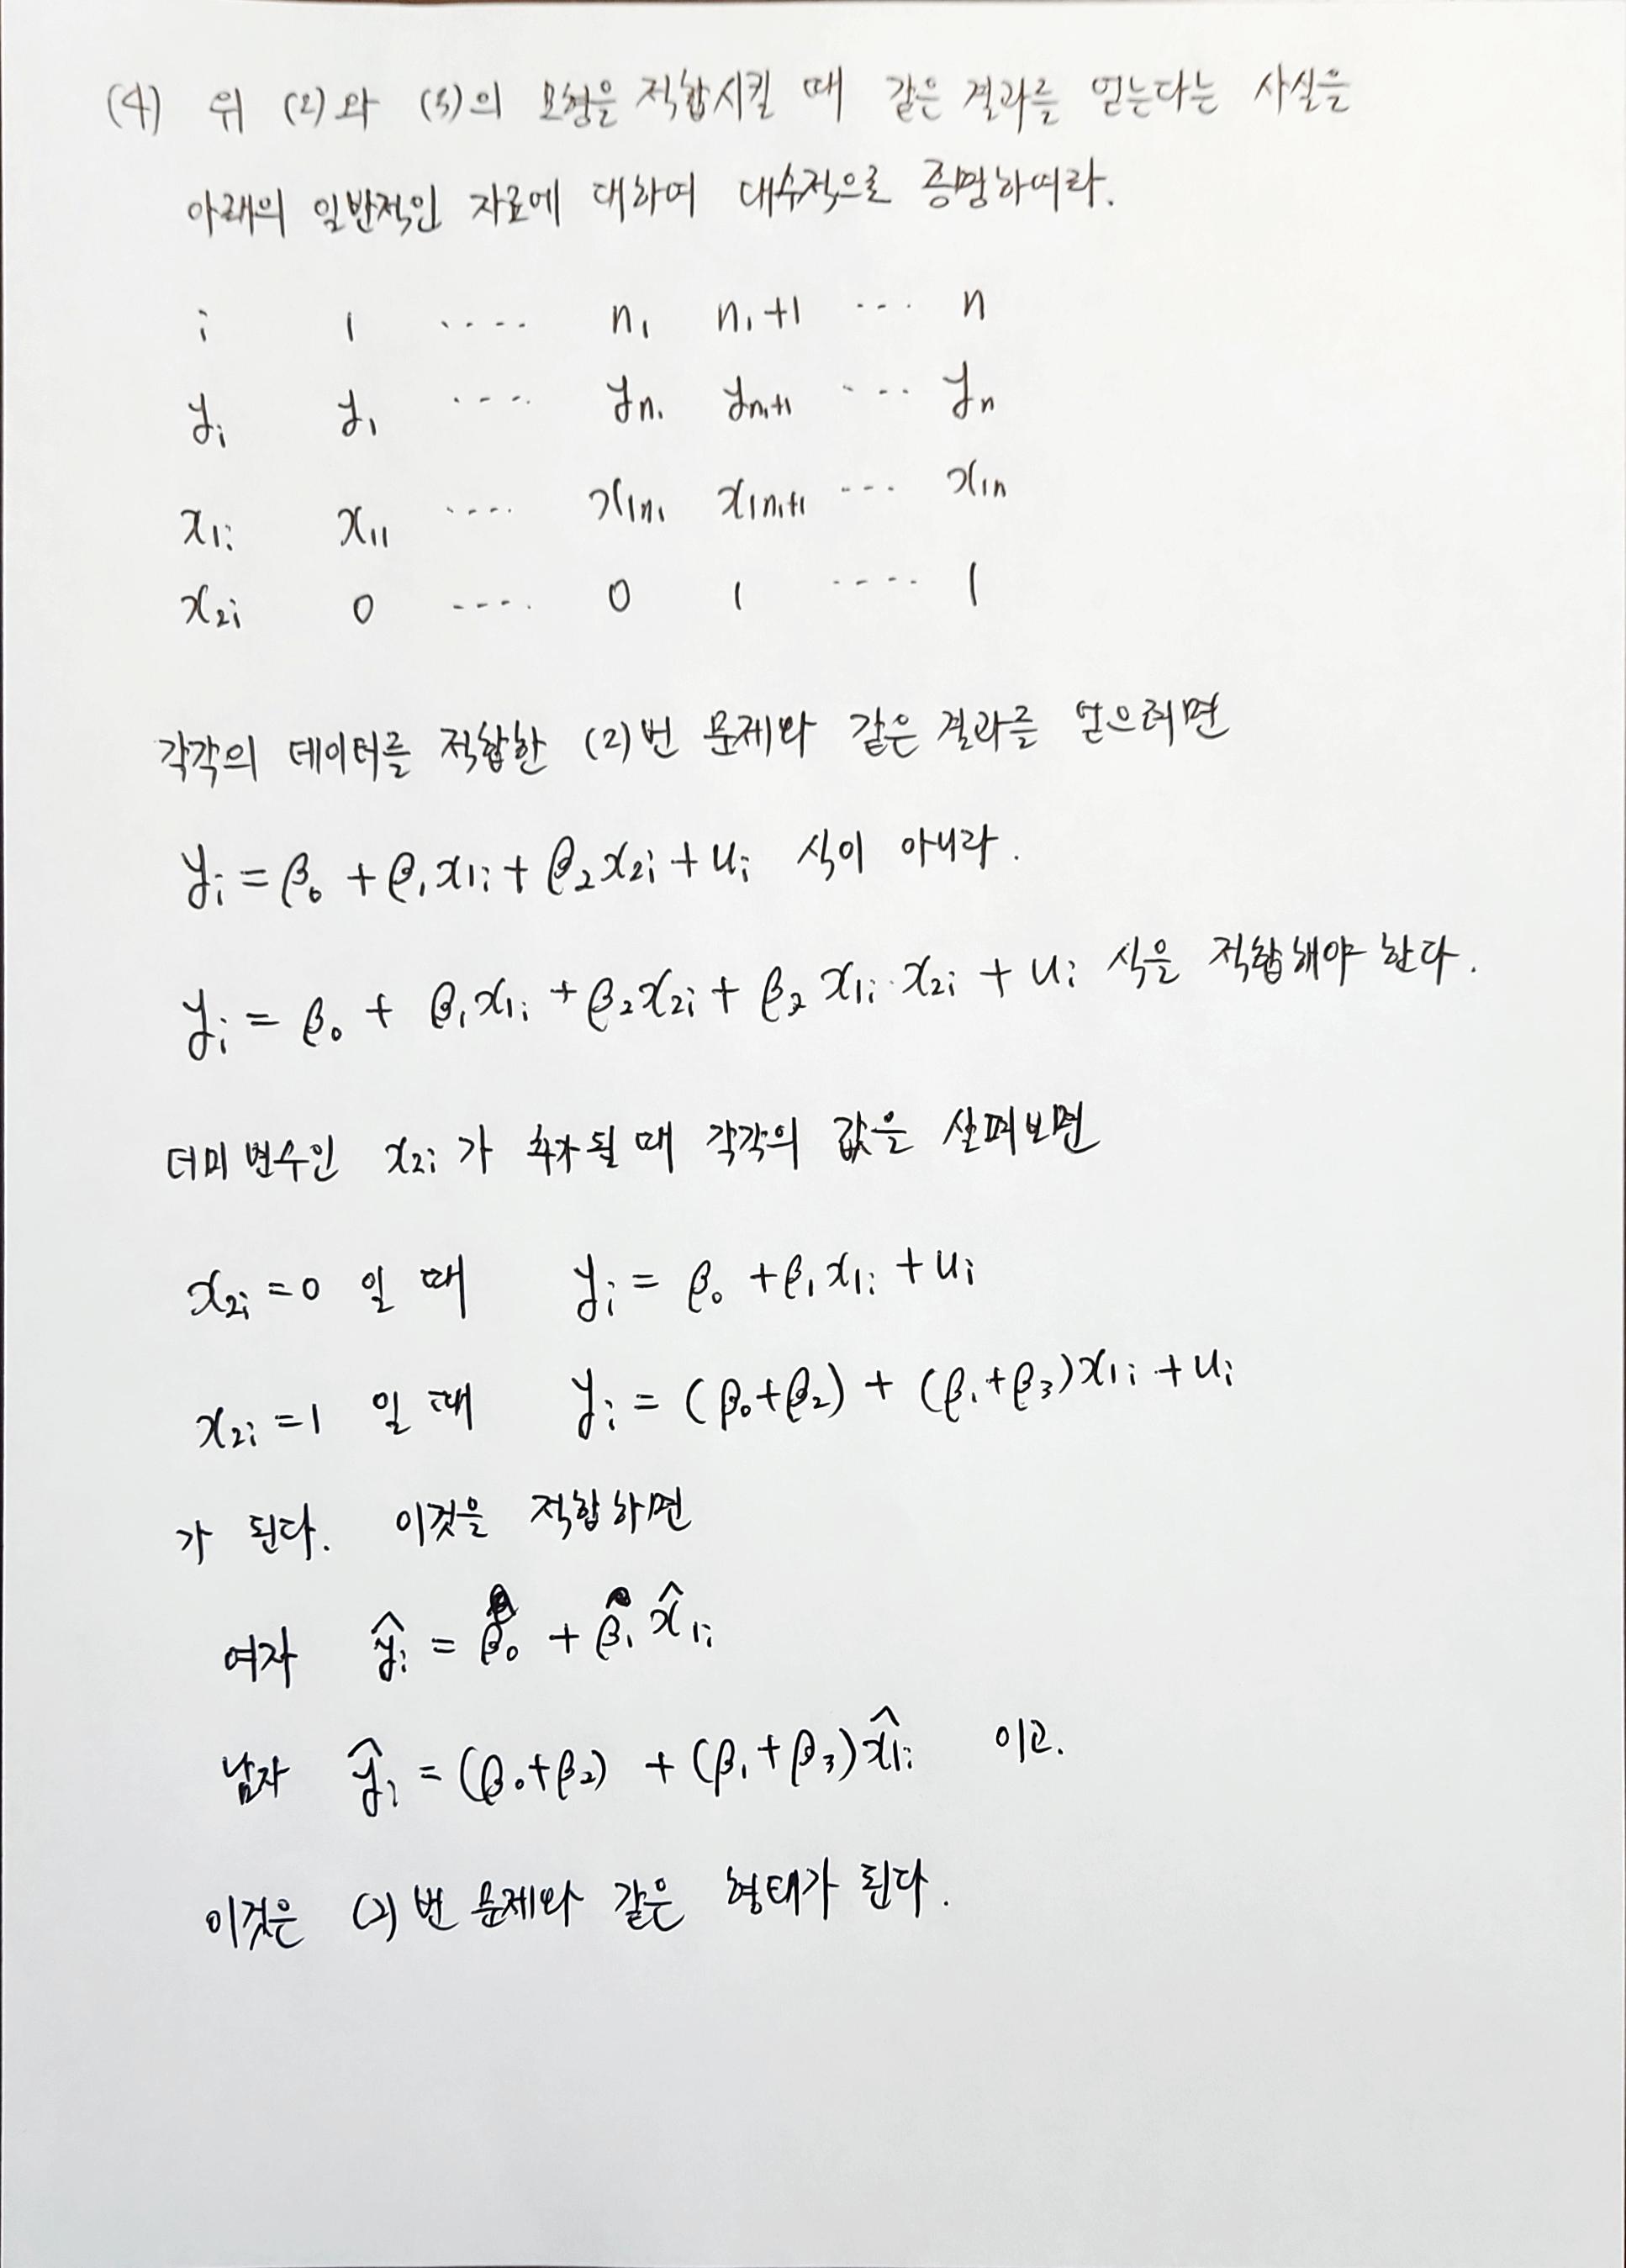 (4) 위 (2)와 (3)의 모형을 적합시킬 때 같은 결과를 얻는다는 사실을
아래의 일반적인 자료에 대하여 대수적으로 증명하여라.
i 1 ···· n₁ n₁+1 ··· n
yᵢ y₁ ···· yn₁ yn₁+1 ··· yn
x₁ᵢ x₁₁ ···· x₁n₁ x₁n₁+1 ··· x₁n
x₂ᵢ 0 ···· 0 1 ···· 1
각각의 데이터를 적합한 (2)번 문제와 같은 결과를 얻으려면
yᵢ = β₀ + β₁x₁ᵢ + β₂x₂ᵢ + uᵢ 식이 아니라.
yᵢ = β₀ + β₁x₁ᵢ + β₂x₂ᵢ + β₂ x₁ᵢ · x₂ᵢ + uᵢ 식을 적합해야 한다.
더미 변수인 x₂ᵢ가 추가될 때 각각의 값을 살펴보면
x₂ᵢ = 0 일 때 yᵢ = β₀ + β₁x₁ᵢ + uᵢ
x₂ᵢ = 1 일 때 yᵢ = (β₀+β₂) + (β₁+β₃)x₁ᵢ + uᵢ
가 된다. 이것을 적합하면
여자 ŷᵢ = β₀ + β₁ x̂₁ᵢ
남자 ŷᵢ = (β₀+β₂) + (β₁+β₃)x̂₁ᵢ 이고.
이것은 (2)번 문제와 같은 형태가 된다.